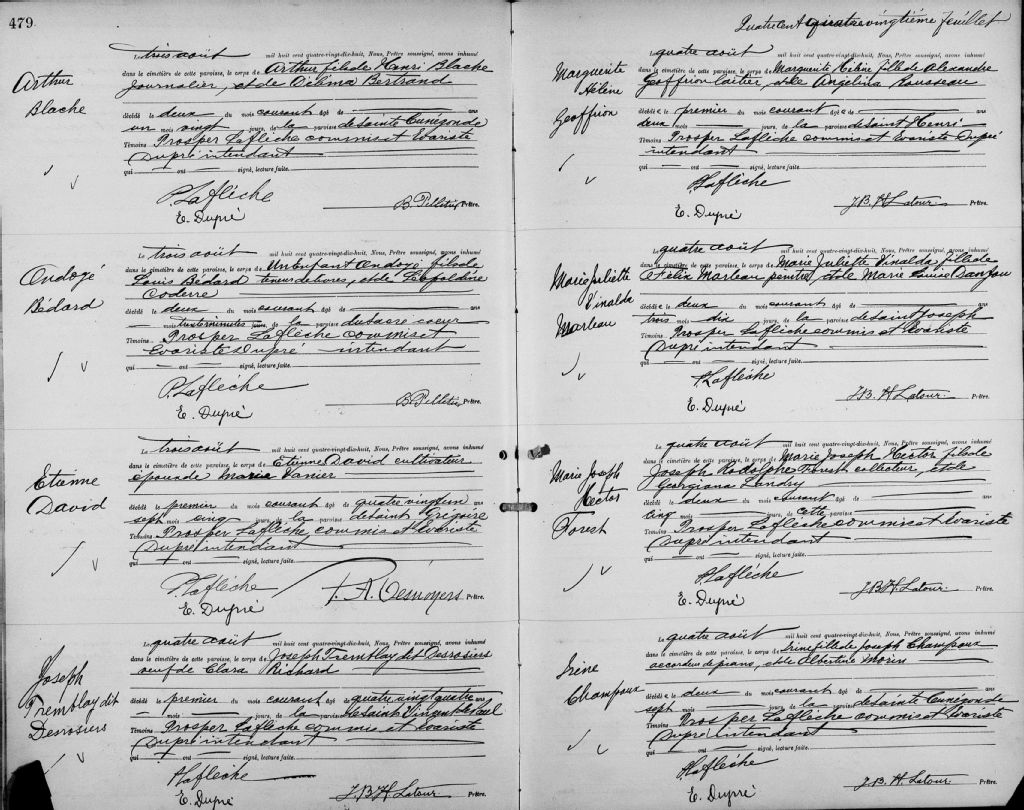 479.
Arthur
Blache
Le trois août mil huit cent quatre-vingt-dix-huit, Nous, Prêtre soussigné, avons inhumé
dans le cimetière de cette paroisse, le corps de Arthur fils de Henri Blache
Journalier, et de Délima Bertrand
décédé le deux du mois courant âgé de ans
un mois vingt jours, de la paroisse de Sainte Cunégonde
Témoins Prosper Laflèche commis et Evariste
Dupré intendant
qui ont signé, lecture faite.
P. Laflèche
E. Dupré
B. Pelletier Prêtre.
Ondoyé
Bédard
Le trois août mil huit cent quatre-vingt-dix-huit, Nous, Prêtre soussigné, avons inhumé
dans le cimetière de cette paroisse, le corps de Un Enfant Ondoyé fils de
Louis Bédard teneur de livres, et de Léopoldine
Coderre
décédé le deux du mois courant âgé de ans
mois trente minutes de la paroisse du Sacré Coeur
Témoins Prosper Laflèche commis et
Evariste Dupré intendant
qui ont signé, lecture faite.
P. Laflèche
E. Dupré
B. Pelletier Prêtre.
Etienne
David
Le trois août mil huit cent quatre-vingt-dix-huit, Nous, Prêtre soussigné, avons inhumé
dans le cimetière de cette paroisse, le corps de Etienne David cultivateur
époux de Marie Vanier
décédé le premier du mois courant âgé de quatre vingt un ans
sept mois cinq jours, de la paroisse de Saint Grégoire
Témoins Prosper Laflèche commis et Evariste
Dupré intendant
qui ont signé, lecture faite.
P. Laflèche
E. Dupré
A. Desnoyers Prêtre.
Joseph
Tremblay dit
Desrosiers
Le quatre août mil huit cent quatre-vingt-dix-huit, Nous, Prêtre soussigné, avons inhumé
dans le cimetière de cette paroisse, le corps de Joseph Tremblay dit Desrosiers
veuf de Clara Richard
décédé le premier du mois courant âgé de quatre vingt quatre ans
mois jours, de la paroisse de Saint Vincent de Paul
Témoins Prosper Laflèche commis et Evariste
Dupré intendant
qui ont signé, lecture faite.
P. Laflèche
E. Dupré
J. B. H. Latour Prêtre.
Quatre cent quatre vingtième feuillet
Marguerite
Hélène
Geoffrion
Le quatre août mil huit cent quatre-vingt-dix-huit, Nous, Prêtre soussigné, avons inhumé
dans le cimetière de cette paroisse, le corps de Marguerite fille de Alexandre
Geoffrion laitier, et de Angelina Rousseau
décédée le premier du mois courant âgé e de ans
deux mois jours, de la paroisse de Saint Henri
Témoins Prosper Laflèche commis et Evariste Dupré
intendant
qui ont signé, lecture faite.
P. Laflèche
E. Dupré
J. B. H. Latour Prêtre.
Marie Juliette
Vinalda
Marleau
Le quatre août mil huit cent quatre-vingt-dix-huit, Nous, Prêtre soussigné, avons inhumé
dans le cimetière de cette paroisse, le corps de Marie Juliette Vinalda fille de
Félix Marleau peintre, et de Marie Louise Danjou
décédée le deux du mois courant âgé de ans
trois mois dix jours, de la paroisse de Saint Joseph
Témoins Prosper Laflèche commis et Evariste
Dupré intendant
qui ont signé, lecture faite.
P. Laflèche
E. Dupré
J. B. H. Latour Prêtre.
Marie Joseph
Hector
Forest
Le quatre août mil huit cent quatre-vingt-dix-huit, Nous, Prêtre soussigné, avons inhumé
dans le cimetière de cette paroisse, le corps de Marie Joseph Hector fils de
Joseph Rodolphe Forest collecteur, et de
Georgiana Landry
décédé le deux du mois courant âgé de ans
cinq mois jours, de cette paroisse
Témoins Prosper Laflèche commis et Evariste
Dupré intendant
qui ont signé, lecture faite.
P. Laflèche
E. Dupré
J. B. H. Latour Prêtre.
Irène
Champoux
Le quatre août mil huit cent quatre-vingt-dix-huit, Nous, Prêtre soussigné, avons inhumé
dans le cimetière de cette paroisse, le corps de Irène fille de Joseph Champoux
accordeur de pianos, et de Albertine Morin
décédé e le deux du mois courant âgé de ans
sept mois jours, de la paroisse de Sainte Cunégonde
Témoins Prosper Laflèche commis et Evariste
Dupré intendant
qui ont signé, lecture faite.
P. Laflèche
E. Dupré
J. B. H. Latour Prêtre.